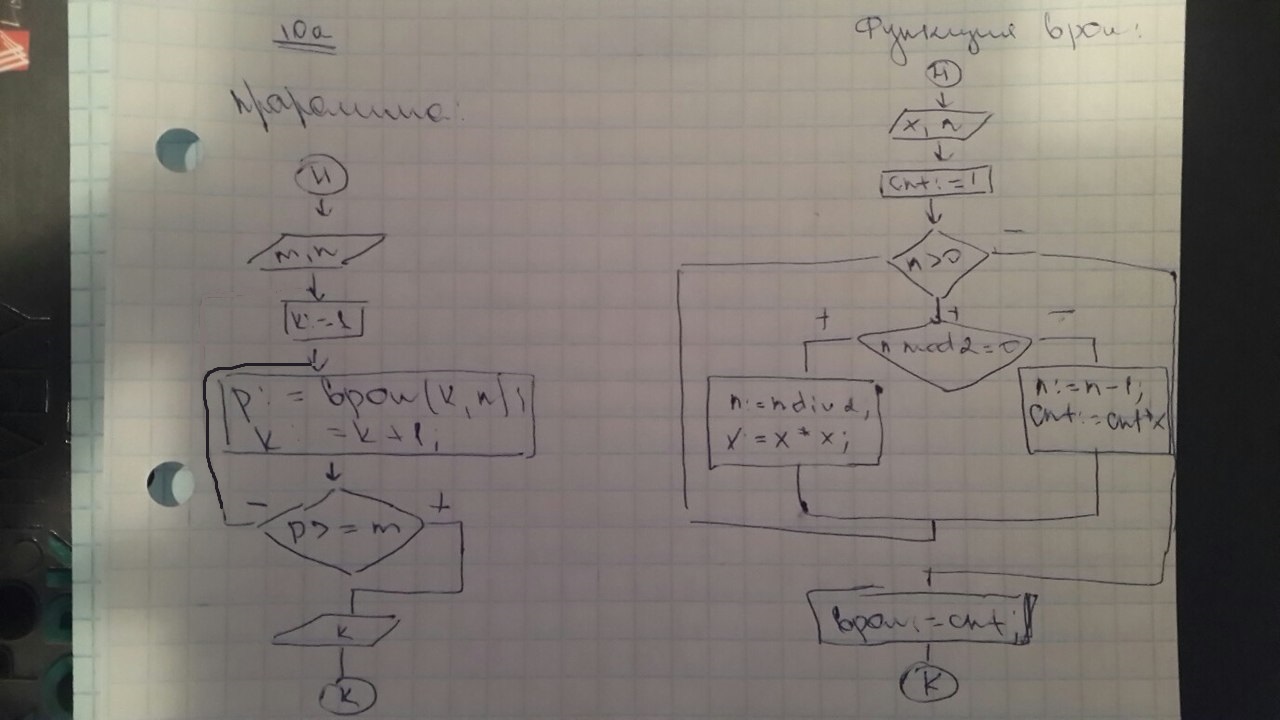 10а
Программа:
Н
m, n
k:=1
p:=bpow(k,n);
k:=k+1;
- +
p>=m
k
К
Функция bpow:
Н
x, n
cnt:=1
-
n>0
+ + -
n mod 2=0
n:=n div 2;
x:=x*x;
n:=n-1;
cnt:=cnt*x
bpow:=cnt;
К